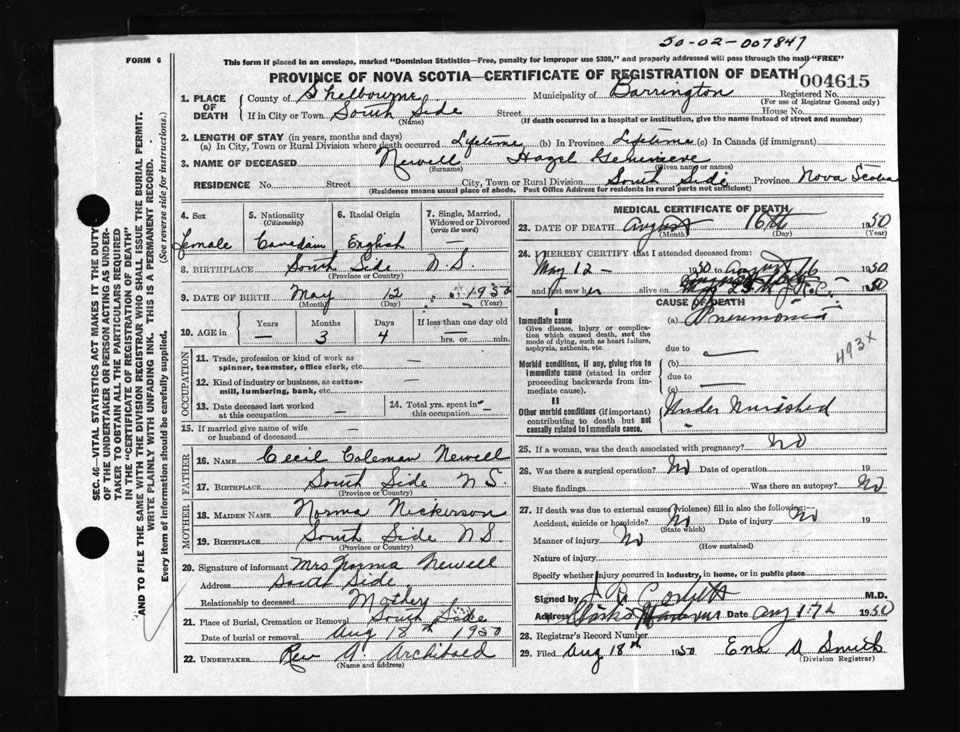 50-02-007847
FORM 6
This form if placed in an envelope, marked "Dominion Statistics—Free, penalty for improper use $300," and properly addressed will pass through the mail "FREE"
PROVINCE OF NOVA SCOTIA—CERTIFICATE OF REGISTRATION OF DEATH
004615
1. PLACE OF DEATH
County of Shelbourne Municipality of Barrington Registered No.
(For use of Registrar General only)
If in City or Town South Side Street House No.
(Name) (If death occurred in a hospital or institution, give the name instead of street and number)
2. LENGTH OF STAY (in years, months and days)
(a) In City, Town or Rural Division where death occurred Lifetime (b) In Province Lifetime (c) In Canada (if immigrant)
3. NAME OF DECEASED Newell Hazel Genivieve
(Surname) (Given name or names)
RESIDENCE No. Street City, Town or Rural Division South Side Province Nova Scotia
(Residence means usual place of abode. Post Office Address for residents in rural parts not sufficient)
4. Sex
5. Nationality (Citizenship)
6. Racial Origin
7. Single, Married, Widowed or Divorced (write the word)
female Canadain English —
8. BIRTHPLACE South Side N S.
(Province or Country)
9. DATE OF BIRTH May 12 1950
(Month) (Day) (Year)
10. AGE in Years Months Days If less than one day old
— 3 4 — hrs. or min.
OCCUPATION
11. Trade, profession or kind of work as spinner, teamster, office clerk, etc. —
12. Kind of industry or business, as cotton-mill, lumbering, bank, etc. —
13. Date deceased last worked at this occupation —
14. Total yrs. spent in this occupation —
15. If married give name of wife or husband of deceased —
FATHER
16. NAME Cecil Coleman Newell
17. BIRTHPLACE South Side N S.
(Province or Country)
MOTHER
18. MAIDEN NAME Norma Nickerson
19. BIRTHPLACE South Side N S.
(Province or Country)
20. Signature of informant Mrs Norma Newell
Address South Side
Relationship to deceased Mother
21. Place of Burial, Cremation or Removal South Side
Date of burial or removal Aug 18th 1950
22. UNDERTAKER Rev A Archibald
(Name and address)
MEDICAL CERTIFICATE OF DEATH
23. DATE OF DEATH August 16th 1950
(Month) (Day) (Year)
24. I HEREBY CERTIFY that I attended deceased from:
May 12 - 1950 to August 16 1950
and last saw her alive on 1950
CAUSE OF DEATH
I
Immediate cause
Give disease, injury or complication which caused death, not the mode of dying, such as heart failure, asphyxia, asthenia, etc.
(a) Pneumonia
due to —
493X
Morbid conditions, if any, giving rise to immediate cause (stated in order proceeding backwards from immediate cause).
(b)
due to —
(c)
II
Other morbid conditions (if important) contributing to death but not causally related to immediate cause.
Under Nurished
25. If a woman, was the death associated with pregnancy? No
26. Was there a surgical operation? No Date of operation 19
State findings Was there an autopsy? No
27. If death was due to external causes (violence) fill in also the following:—
Accident, suicide or homicide? No Date of injury No 19
(State which)
Manner of injury No
(How sustained)
Nature of injury
Specify whether injury occurred in industry, in home, or in public place
Signed by M.D.
Address Clarks Harbour Date Aug 17th 1950
28. Registrar's Record Number
29. Filed Aug 18th 1950 Ena A Smith
(Division Registrar)
SEC. 46—VITAL STATISTICS ACT MAKES IT THE DUTY
OF THE UNDERTAKER OR PERSON ACTING AS UNDER-
TAKER TO OBTAIN ALL THE PARTICULARS REQUIRED
IN THE "CERTIFICATE OF REGISTRATION OF DEATH"
AND TO FILE THE SAME WITH THE DIVISION REGISTRAR WHO SHALL ISSUE THE BURIAL PERMIT.
WRITE PLAINLY WITH UNFADING INK. THIS IS A PERMANENT RECORD.
Every item of information should be carefully supplied. (See reverse side for instructions.)